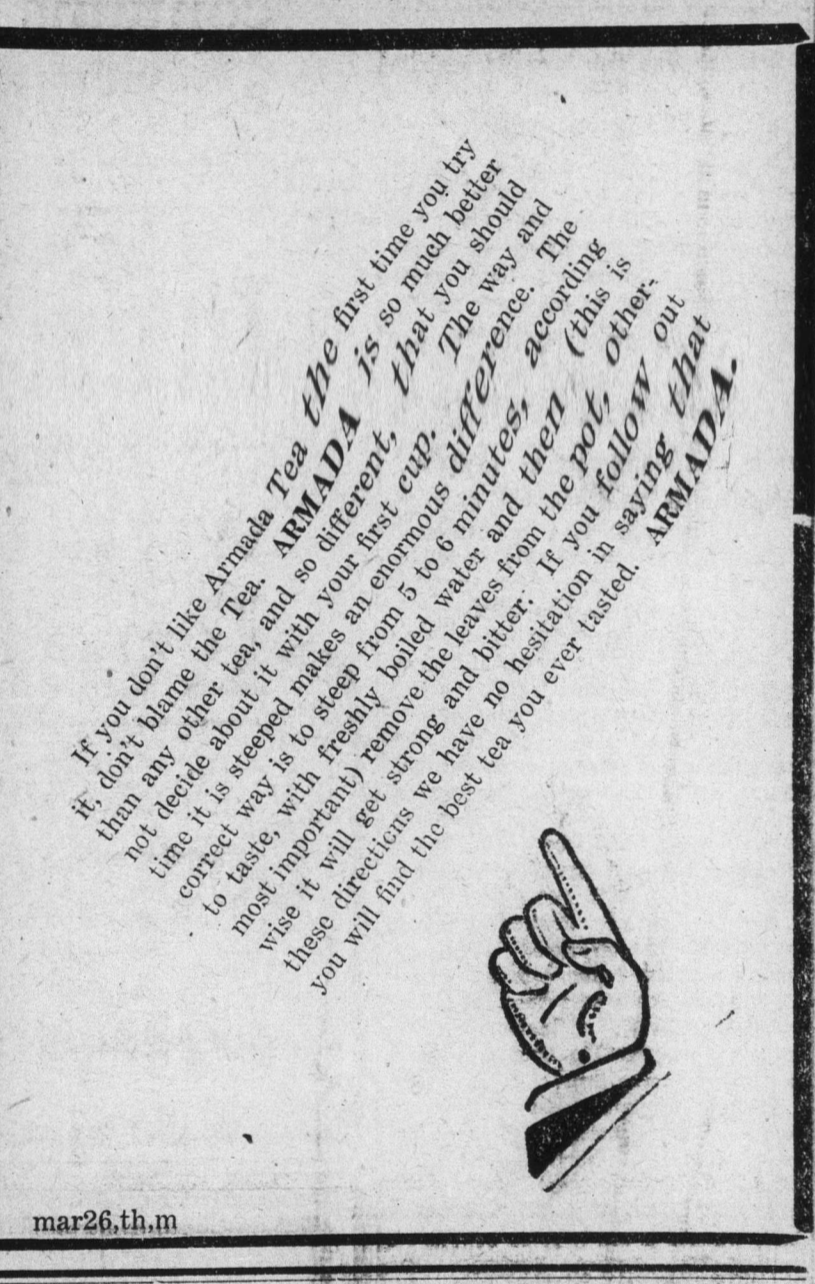 If you don't like Armada Tea the first time you try
it, don't blame the Tea. ARMADA is so much better
than any other tea, and so different, that you should
not decide about it with your first cup. The way and
time it is steeped makes an enormous difference. The
correct way is to steep from 5 to 6 minutes, according
to taste, with freshly boiled water and then (this is
most important) remove the leaves from the pot, other-
wise it will get strong and bitter. If you follow out
these directions we have no hesitation in saying that
you will find the best tea you ever tasted. ARMADA.
mar26,th,m